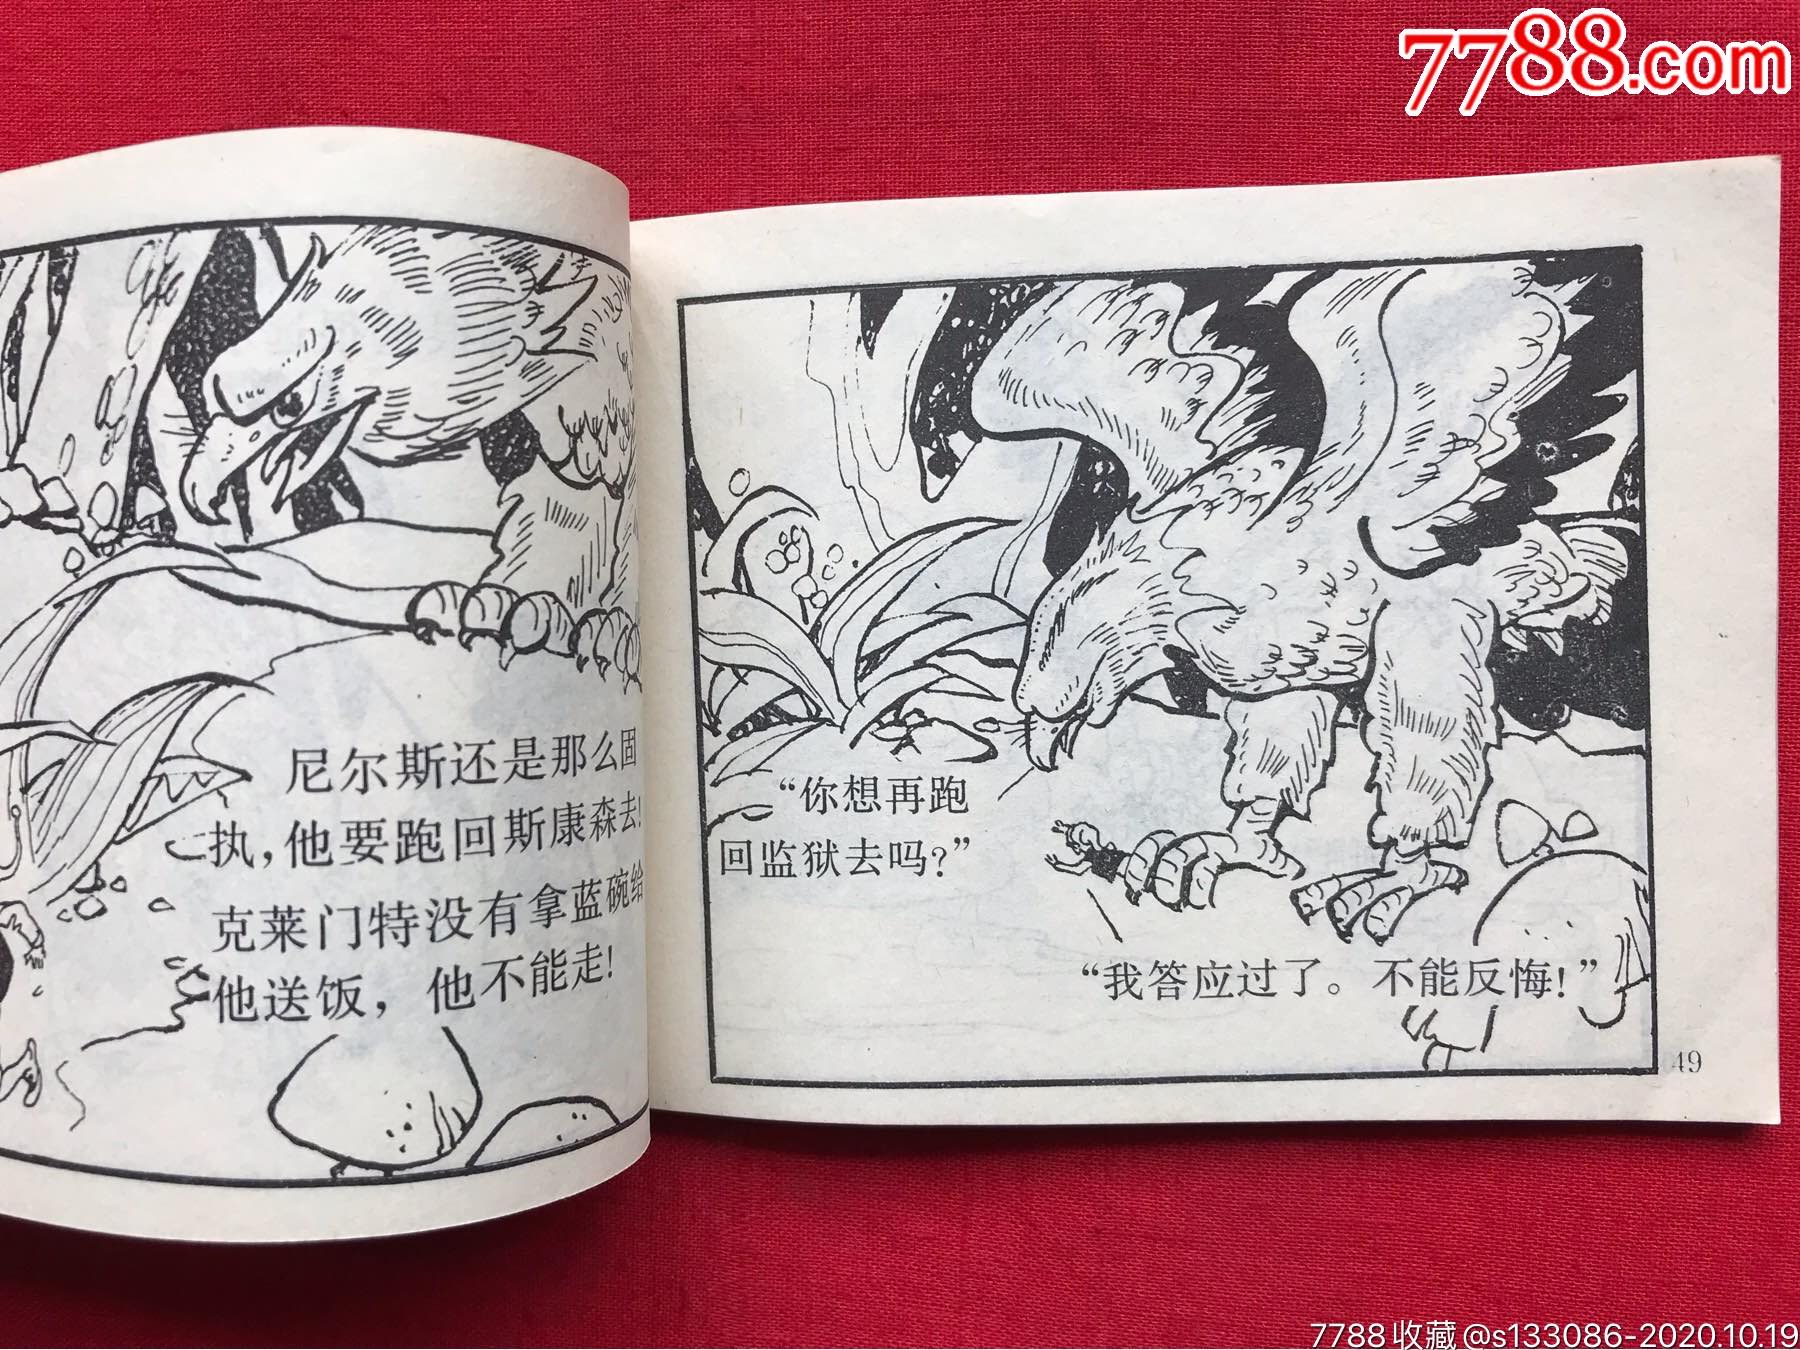 7788.com
尼尔斯还是那么固
执，他要跑回斯康森去！
克莱门特没有拿蓝碗给
他送饭，他不能走！
“你想再跑
回监狱去吗？”
“我答应过了。不能反悔！”
49
7788收藏@s133086-2020.10.19